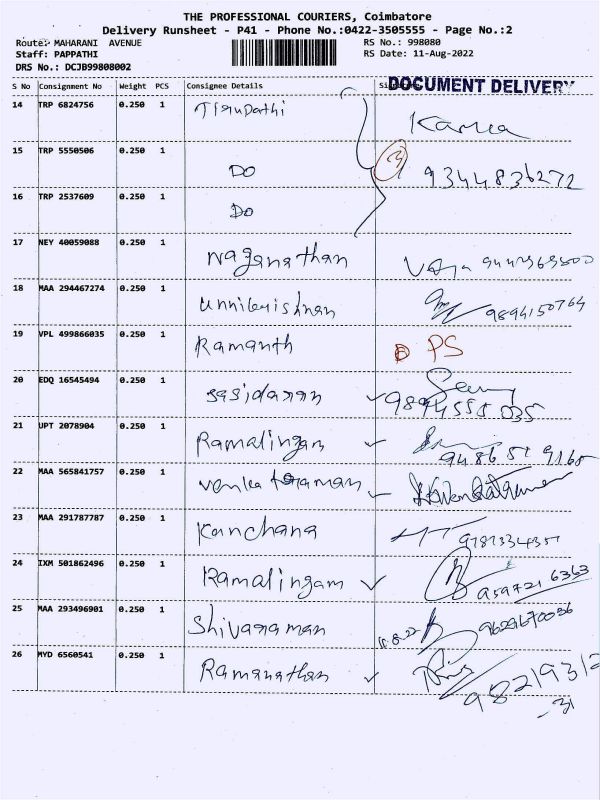 THE PROFESSIONAL COURIERS, Coimbatore
Delivery Runsheet - P41 - Phone No.:0422-3505555 - Page No.:2
Route: MAHARANI AVENUE RS No.: 998080
Staff: PAPPATHI RS Date: 11-Aug-2022
DRS No.: DCJB99808002
DOCUMENT DELIVERY
S No Consignment No Weight PCS Consignee Details
14 TRP 6824756 0.250 1 Tirupathi
15 TRP 5550506 0.250 1 DO 9344836272
16 TRP 2537609 0.250 1 DO
17 NEY 40059088 0.250 1 Naganathan
18 MAA 294467274 0.250 1 unnikrishnan 9894150764
19 VPL 499866035 0.250 1 Ramanth PS
20 EDQ 16545494 0.250 1 sasidaran 9894555035
21 UPT 2078904 0.250 1 Ramalingam
22 MAA 565841757 0.250 1 venkataraman
23 MAA 291787787 0.250 1 Kanchana
24 IXM 501862496 0.250 1 Ramalingam 9597216363
25 MAA 293496901 0.250 1 Shivaraman 11-8-22 9629670036
26 MYD 6560541 0.250 1 Ramanathan